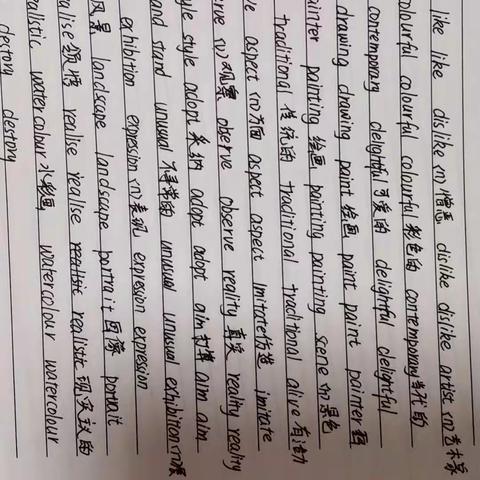 like like dislike(n)憎恶 dislike dislike artist(n)艺术家
colourful colourful colourful 彩色的 contemporary当代的
contemporary delightful可爱的 delightful delightful
drawing drawing paint 绘画 paint paint painter画
painter painting绘画 painting painting scene(n)景色
traditional 传统的 traditional traditional alive 有活力
aspect(n)方面 aspect aspect imitate仿造 imitate
(v)观察 observe observe reality 真实 reality reality
style style adopt 采纳 adopt adopt aim打算 aim aim
and stand unusual 不寻常的 unusual unusual exhibition(n)展
exhibition expression(n)表现 expression expression
风景 landscape landscape portrait 画像 portrait
alise 领悟 reallise reallise realistic realistic 现实主义的
alistic watercolour水彩画 watercolour watercolour
destory destory